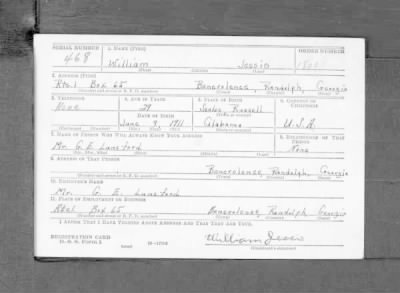 SERIAL NUMBER 1. NAME (Print) ORDER NUMBER
468 William Jessie
(First) (Middle) (Last)
2. ADDRESS (Print)
Rte.1 Box 65 Benevolence, Randolph, Georgia
3. TELEPHONE 4. AGE IN YEARS 5. PLACE OF BIRTH 6. COUNTRY OF CITIZENSHIP
None 29 Russell
DATE OF BIRTH
June 9 1911 Alabama U.S.A.
7. NAME OF PERSON WHO WILL ALWAYS KNOW YOUR ADDRESS 8. RELATIONSHIP OF THAT PERSON
Mr. G. E. Lunsford None
9. ADDRESS OF THAT PERSON
Benevolence, Randolph, Georgia
10. EMPLOYER'S NAME
Mr. G. E. Lunsford
11. PLACE OF EMPLOYMENT OR BUSINESS
Rte1 Box 65 Benevolence Randolph Georgia
I AFFIRM THAT I HAVE VERIFIED ABOVE ANSWERS AND THAT THEY ARE TRUE.
REGISTRATION CARD
D. S. S. Form 1 (over) 16-17105 William Jessie
(Registrant's signature)